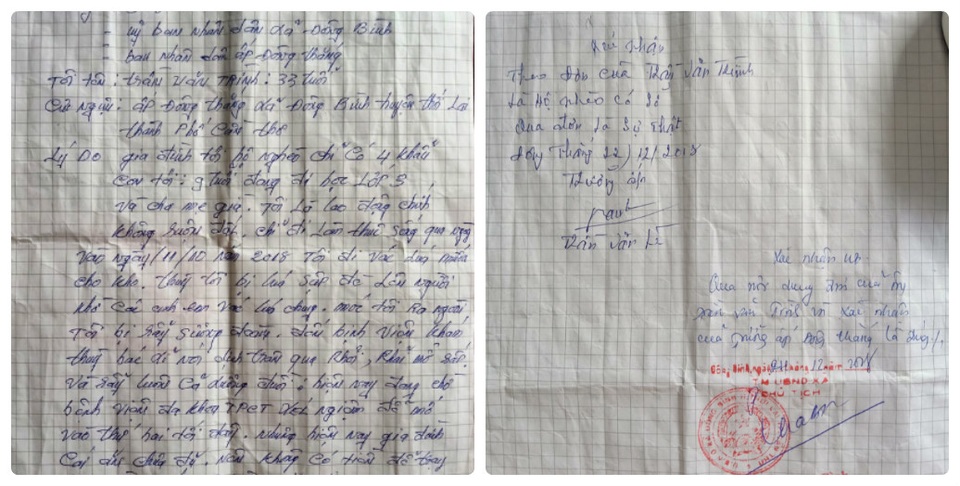 - uỷ ban nhân dân xã Đông Bình
- ban nhân dân ấp Đông Thắng
Tôi tên: trần văn TRinh: 33 tuổi
Cư ngụ: ấp Đông thắng xã Đông Bình huyện thới Lai
thành Phố Cần thơ
Lý Do gia đình tôi hộ nghèo chỉ có 4 khẩu
Con tôi: 9 tuổi đang đi học Lớp 3
và cha mẹ già. Tôi Là lao động chính
không ruộn đất. chỉ đi Làm thuê sống qua ngày
vào ngày 11/10 năm 2018 Tôi đi vác lúa mướn
cho kho. thì tôi bị lúa sập đè Lên người
nhờ các anh em vác lúa chung. móc tôi ra ngoài
Tôi bị gẫy sương đòn. đến bệnh viện khám
thì bác sĩ nói
và gẫy luôn cả đường; hiện nay đang chờ
bệnh viện đa khoa TPCT để mổ
vào thứ hai tới đây. nhưng hiện nay gia đình
không có tiền để
Xác nhận
Theo đơn của Trần Văn Trinh
Là Hộ nghèo có Sổ
Qua đơn Là Sự Thật
đông Thắng 22/12/2018
Trưởng ấp
Trần Văn
Xác nhận UB
Qua nội dung đơn của ông
trần văn Trinh và Xác nhận
của trưởng ấp Đông thắng là đúng./.
Đông Bình, ngày 24 tháng 12 năm 2018
TM UBND XÃ
CHỦ TỊCH